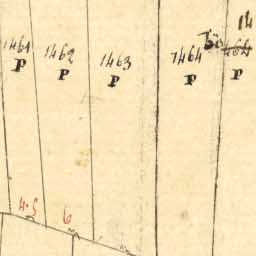 14
1461 1462 1463 1464
P P P P P
4.5 6